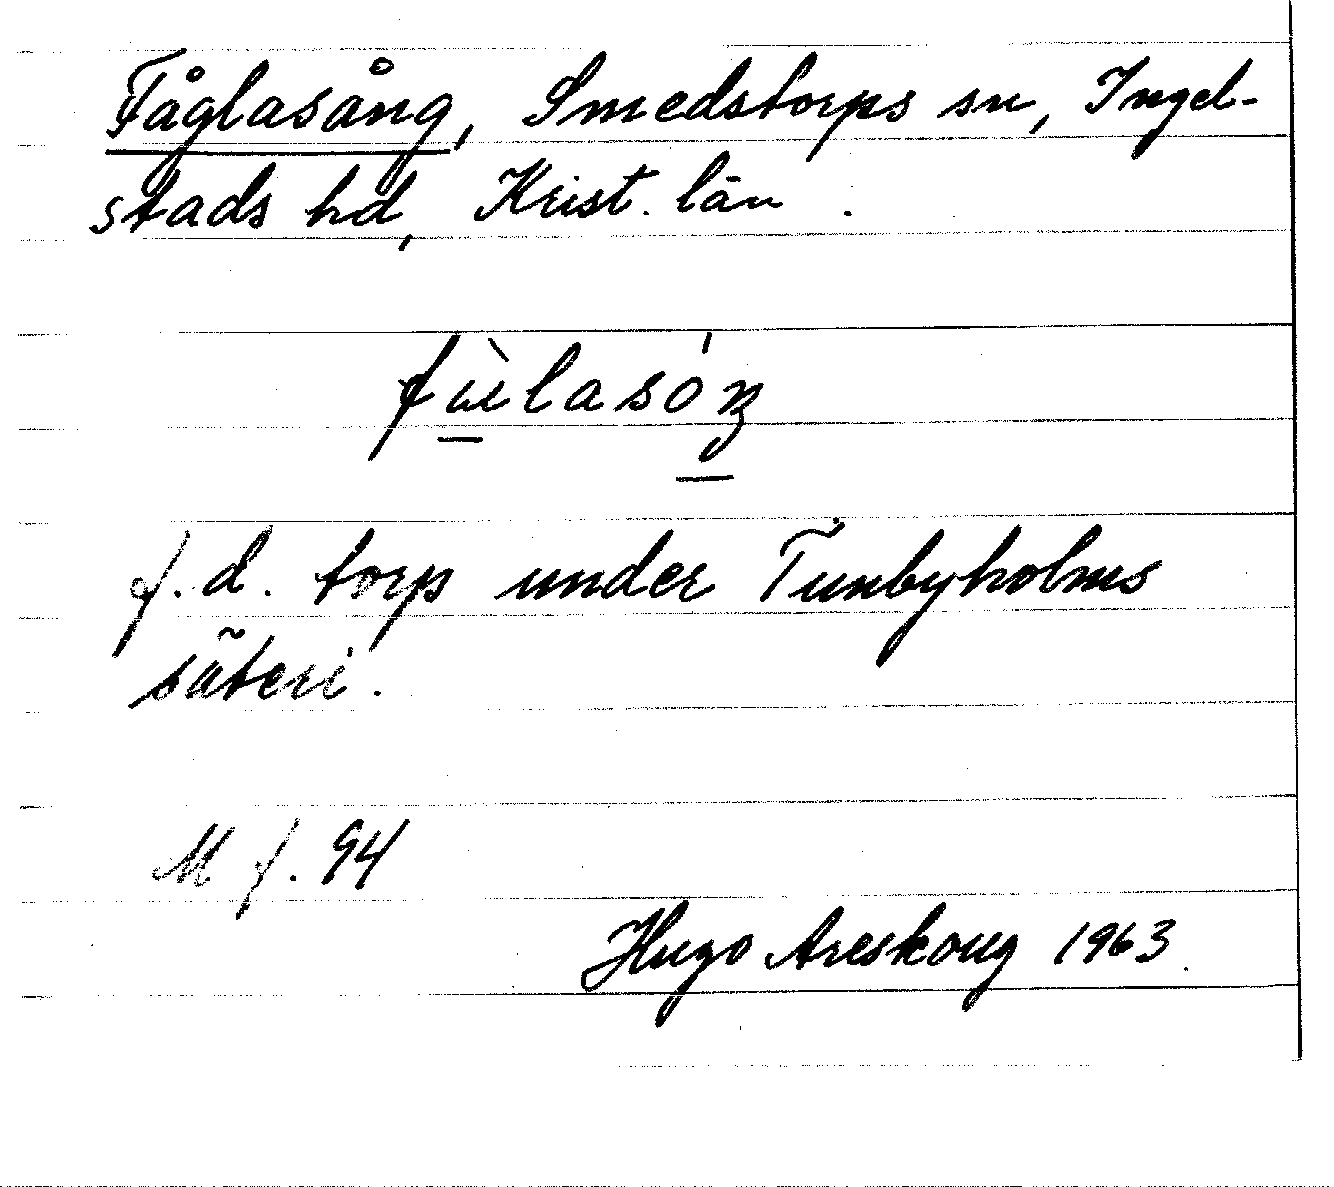 Fåglasång, Smedstorps sn, Ingel-
stads hd, Krist. län.
f.d. torp under Tunbyholms
säteri.
M f. 94
Hugo Areskoug 1963.